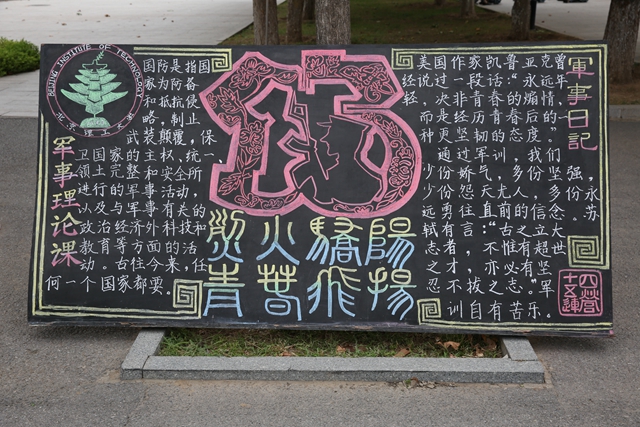 BEIJING INSTITUTE OF TECHNOLOGY
北京理工大学
军事理论课
国防是指国
家为防备
和抵抗侵
略,制止
武装颠覆,保
卫国家的主权、统一、
领土完整和安全所
进行的军事活动,
以及与军事有关的
教育等方面的活
动。古往今来,任
何一个国家都要
15
焱火驕陽
青春飛揚
軍事日記
美国作家凯鲁亚克曾
经说过一段话:“永远年
轻,
而是经历青春后的一
种更坚韧的态度。”
通过军训,我们
少份娇气,多份坚强,
少份怨天尤人,多份
远勇往直前的信念,永
轼有言:“古之立大
志者,不惟有超世
之才,亦必有坚
忍不拔之志。”军
训自有苦乐。
四营
十五連